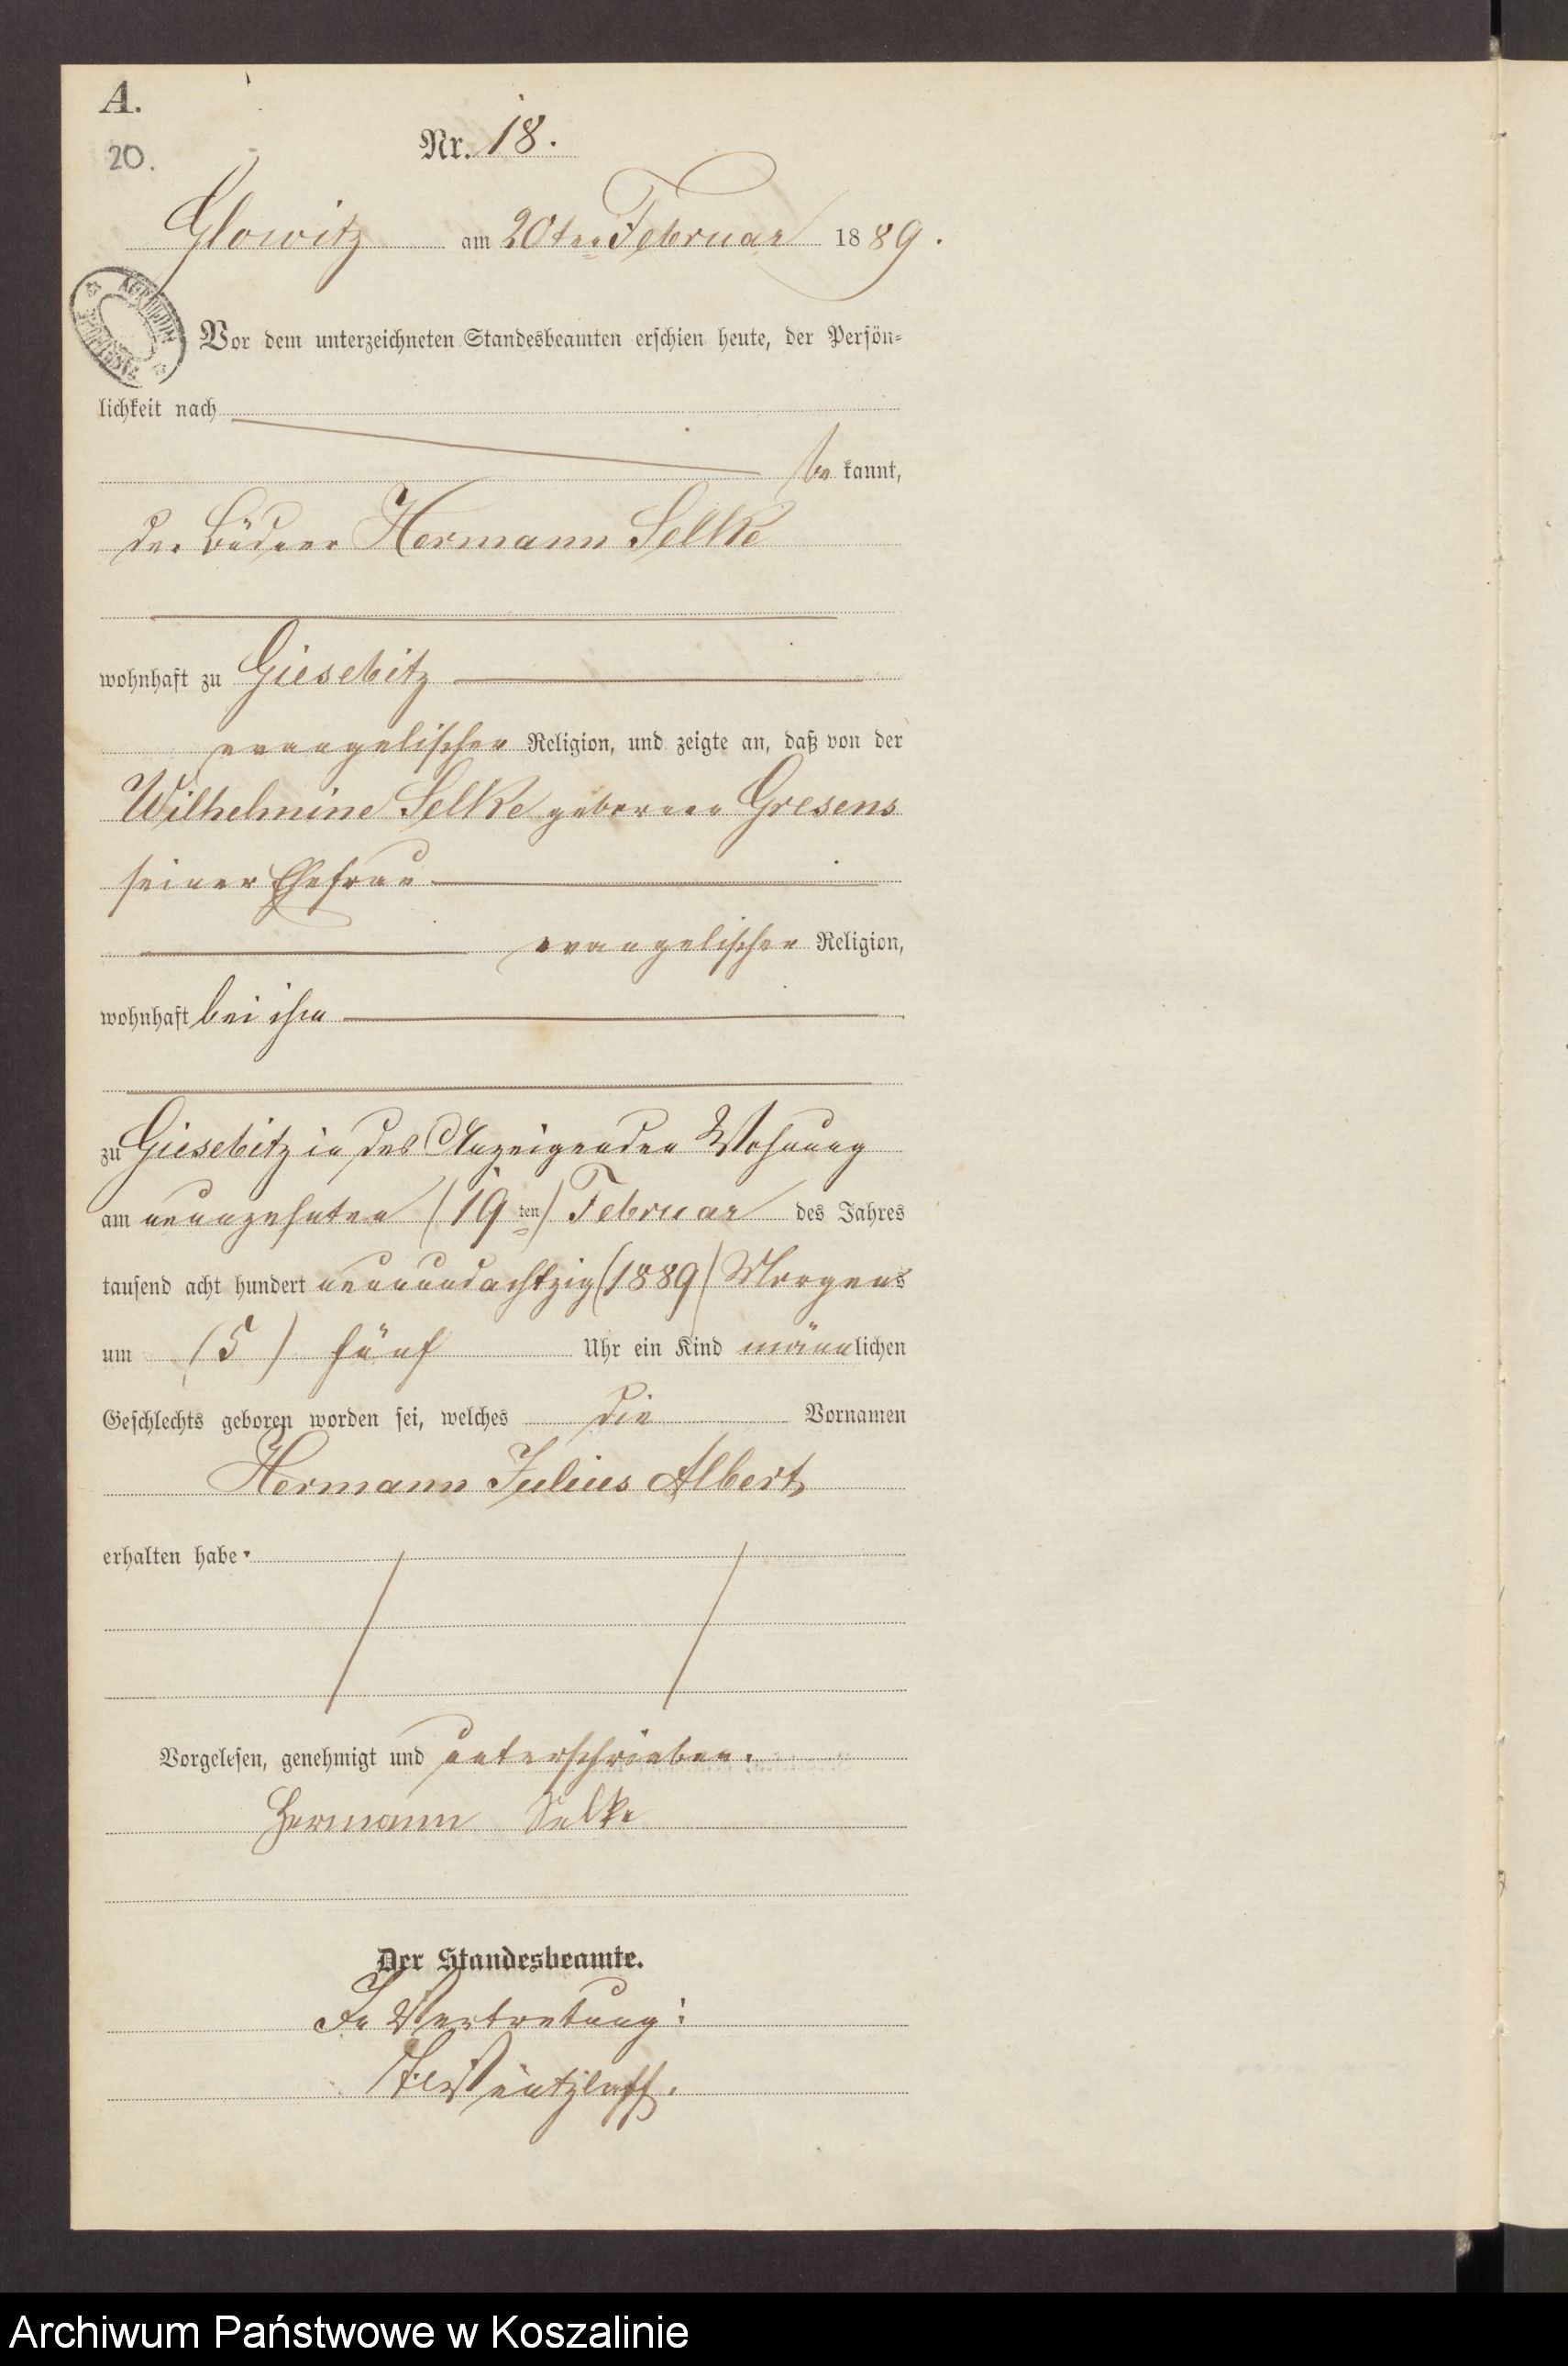 A.
20.
Nr. 18.
Glowitz am 20ten Februar 1889.
Vor dem unterzeichneten Standesbeamten erschien heute, der Persön-
lichkeit nach
be kannt,
der Büdner Hermann Selke
wohnhaft zu Giesebitz
evangelischer Religion, und zeigte an, daß von der
Wilhelmine Selke geborenen Gresens
seiner Ehefrau
evangelischer Religion,
wohnhaft bei ihm
zu Giesebitz in des Anzeigenden Wohnung
am neunzehnten (19ten) Februar des Jahres
tausend acht hundert neunundachtzig (1889) Morgens
um (5) fünf Uhr ein Kind männlichen
Geschlechts geboren worden sei, welches die Vornamen
Hermann Julius Albert
erhalten habe.
Vorgelesen, genehmigt und unterschrieben.
Hermann Selke
Der Standesbeamte.
In Vertretung:
Archiwum Państwowe w Koszalinie